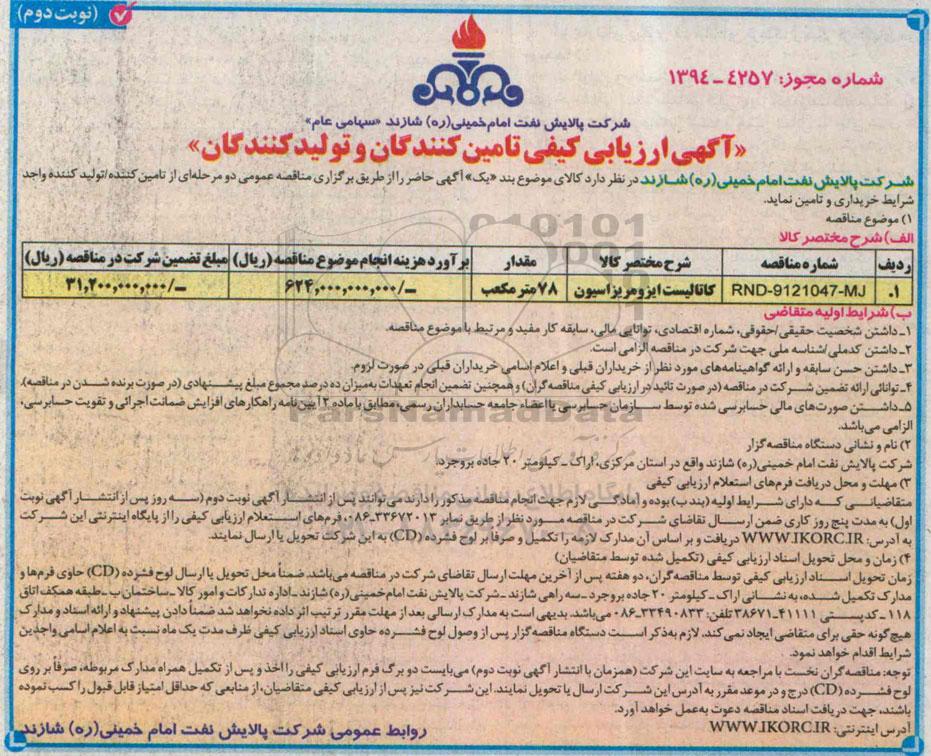 (نوبت دوم)
شماره مجوز: ۴۲۵۷ - ۱۳۹۴
شرکت پالایش نفت امام خمینی(ره) شازند «سهامی عام»
«آگهی ارزیابی کیفی تامین کنندگان و تولیدکنندگان»
شرکت پالایش نفت امام خمینی(ره) شازند در نظر دارد کالای موضوع بند «یک» آگهی حاضر را از طریق برگزاری مناقصه عمومی دو مرحله‌ای از تامین کننده/تولید کننده واجد
شرایط خریداری و تامین نماید.
۱) موضوع مناقصه
الف) شرح مختصر کالا
ردیف شماره مناقصه شرح مختصر کالا مقدار برآورد هزینه انجام موضوع مناقصه (ریال) مبلغ تضمین شرکت در مناقصه (ریال)
۱. RND-9121047-MJ کاتالیست ایزومریزاسیون ۷۸ متر مکعب ۶۲۴,۰۰۰,۰۰۰,۰۰۰/- ۳۱,۲۰۰,۰۰۰,۰۰۰/-
ب) شرایط اولیه متقاضی
۱- داشتن شخصیت حقیقی/حقوقی، شماره اقتصادی، توانایی مالی، سابقه کار مفید و مرتبط با موضوع مناقصه.
۲- داشتن کدملی/شناسه ملی جهت شرکت در مناقصه الزامی است.
۳- داشتن حسن سابقه و ارائه گواهینامه‌های مورد نظر از خریداران قبلی و اعلام اسامی خریداران قبلی در صورت لزوم.
۴- توانائی ارائه تضمین شرکت در مناقصه (در صورت تائید در ارزیابی کیفی مناقصه‌گران) و همچنین تضمین انجام تعهدات به‌میزان ده درصد مجموع مبلغ پیشنهادی (در صورت برنده شدن در مناقصه).
۵- داشتن صورت‌های مالی حسابرسی شده توسط سازمان حسابرسی یا اعضاء جامعه حسابداران رسمی، مطابق با ماده ۲ آیین نامه راهکارهای افزایش ضمانت اجرائی و تقویت حسابرسی،
الزامی می‌باشد.
۲) نام و نشانی دستگاه مناقصه‌گزار
شرکت پالایش نفت امام خمینی(ره) شازند واقع در استان مرکزی، اراک - کیلومتر ۲۰ جاده بروجرد.
۳) مهلت و محل دریافت فرم‌های استعلام ارزیابی کیفی
متقاضیانی که دارای شرایط اولیه (بند ب) بوده و آمادگی لازم جهت انجام مناقصه مذکور را دارند می‌توانند پس از انتشار آگهی نوبت دوم (سه روز پس از انتشار آگهی نوبت
اول) به مدت پنج روز کاری ضمن ارسال تقاضای شرکت در مناقصه مورد نظر از طریق نمابر ۳۳۶۷۲۰۱۳-۰۸۶، فرم‌های استعلام ارزیابی کیفی را از پایگاه اینترنتی این شرکت
به آدرس: WWW.IKORC.IR دریافت و بر اساس آن مدارک لازمه را تکمیل و صرفاً بر لوح فشرده (CD) به این شرکت تحویل یا ارسال نمایند.
۴) زمان و محل تحویل اسناد ارزیابی کیفی (تکمیل شده توسط متقاضیان)
زمان تحویل اسناد ارزیابی کیفی توسط مناقصه‌گران، دو هفته پس از آخرین مهلت ارسال تقاضای شرکت در مناقصه می‌باشد. ضمناً محل تحویل یا ارسال لوح فشرده (CD) حاوی فرم‌ها و
مدارک تکمیل شده، به نشانی اراک - کیلومتر ۲۰ جاده بروجرد - سه راهی شازند - شرکت پالایش نفت امام خمینی(ره) شازند - اداره تدارکات و امور کالا - ساختمان ب - طبقه همکف اتاق
۱۱۸ - کدپستی ۴۱۱۱۱-۳۸۶۷۱ تلفن: ۳۳۴۹۰۸۳۳-۰۸۶ می‌باشد. بدیهی است به مدارک ارسالی بعد از مهلت مقرر ترتیب اثر داده نخواهد شد ضمناً دادن پیشنهاد و ارائه اسناد و مدارک
هیچ گونه حقی برای متقاضی ایجاد نمی‌کند. لازم به‌ذکر است دستگاه مناقصه‌گزار پس از وصول لوح فشرده حاوی اسناد ارزیابی کیفی ظرف مدت یک ماه نسبت به اعلام اسامی واجدین
شرایط اقدام خواهد نمود.
توجه: مناقصه‌گران نخست با مراجعه به سایت این شرکت (همزمان با انتشار آگهی نوبت دوم) می‌بایست دو برگ فرم ارزیابی کیفی را اخذ و پس از تکمیل همراه مدارک مربوطه، صرفاً بر روی
لوح فشرده (CD) درج و در موعد مقرر به آدرس این شرکت ارسال یا تحویل نمایند. این شرکت نیز پس از ارزیابی کیفی متقاضیان، از منابعی که حداقل امتیاز قابل قبول را کسب نموده
باشند، جهت دریافت اسناد مناقصه دعوت به‌عمل خواهد آورد.
آدرس اینترنتی: WWW.IKORC.IR
روابط عمومی شرکت پالایش نفت امام خمینی(ره) شازند
ParsNamadData